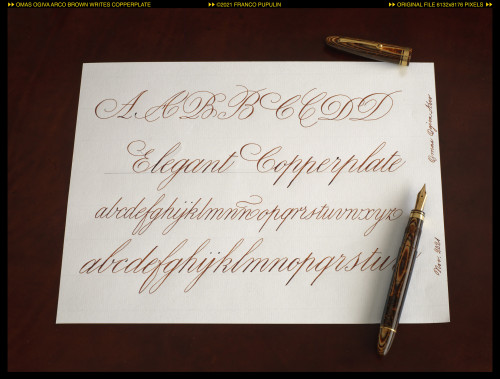 ▸▸ OMAS OGIVA ARCO BROWN WRITES COPPERPLATE ▸▸ ©2021 FRANCO PUPULIN ▸▸ ORIGINAL FILE 6132x8176 PIXELS ▸▸
A A B B C C D D
Elegant Copperplate
abcdefghijklmnñopqrstuvwxyz
abcdefghijklmnopqrstu
Omas Ogiva Arco
Nov. 2021